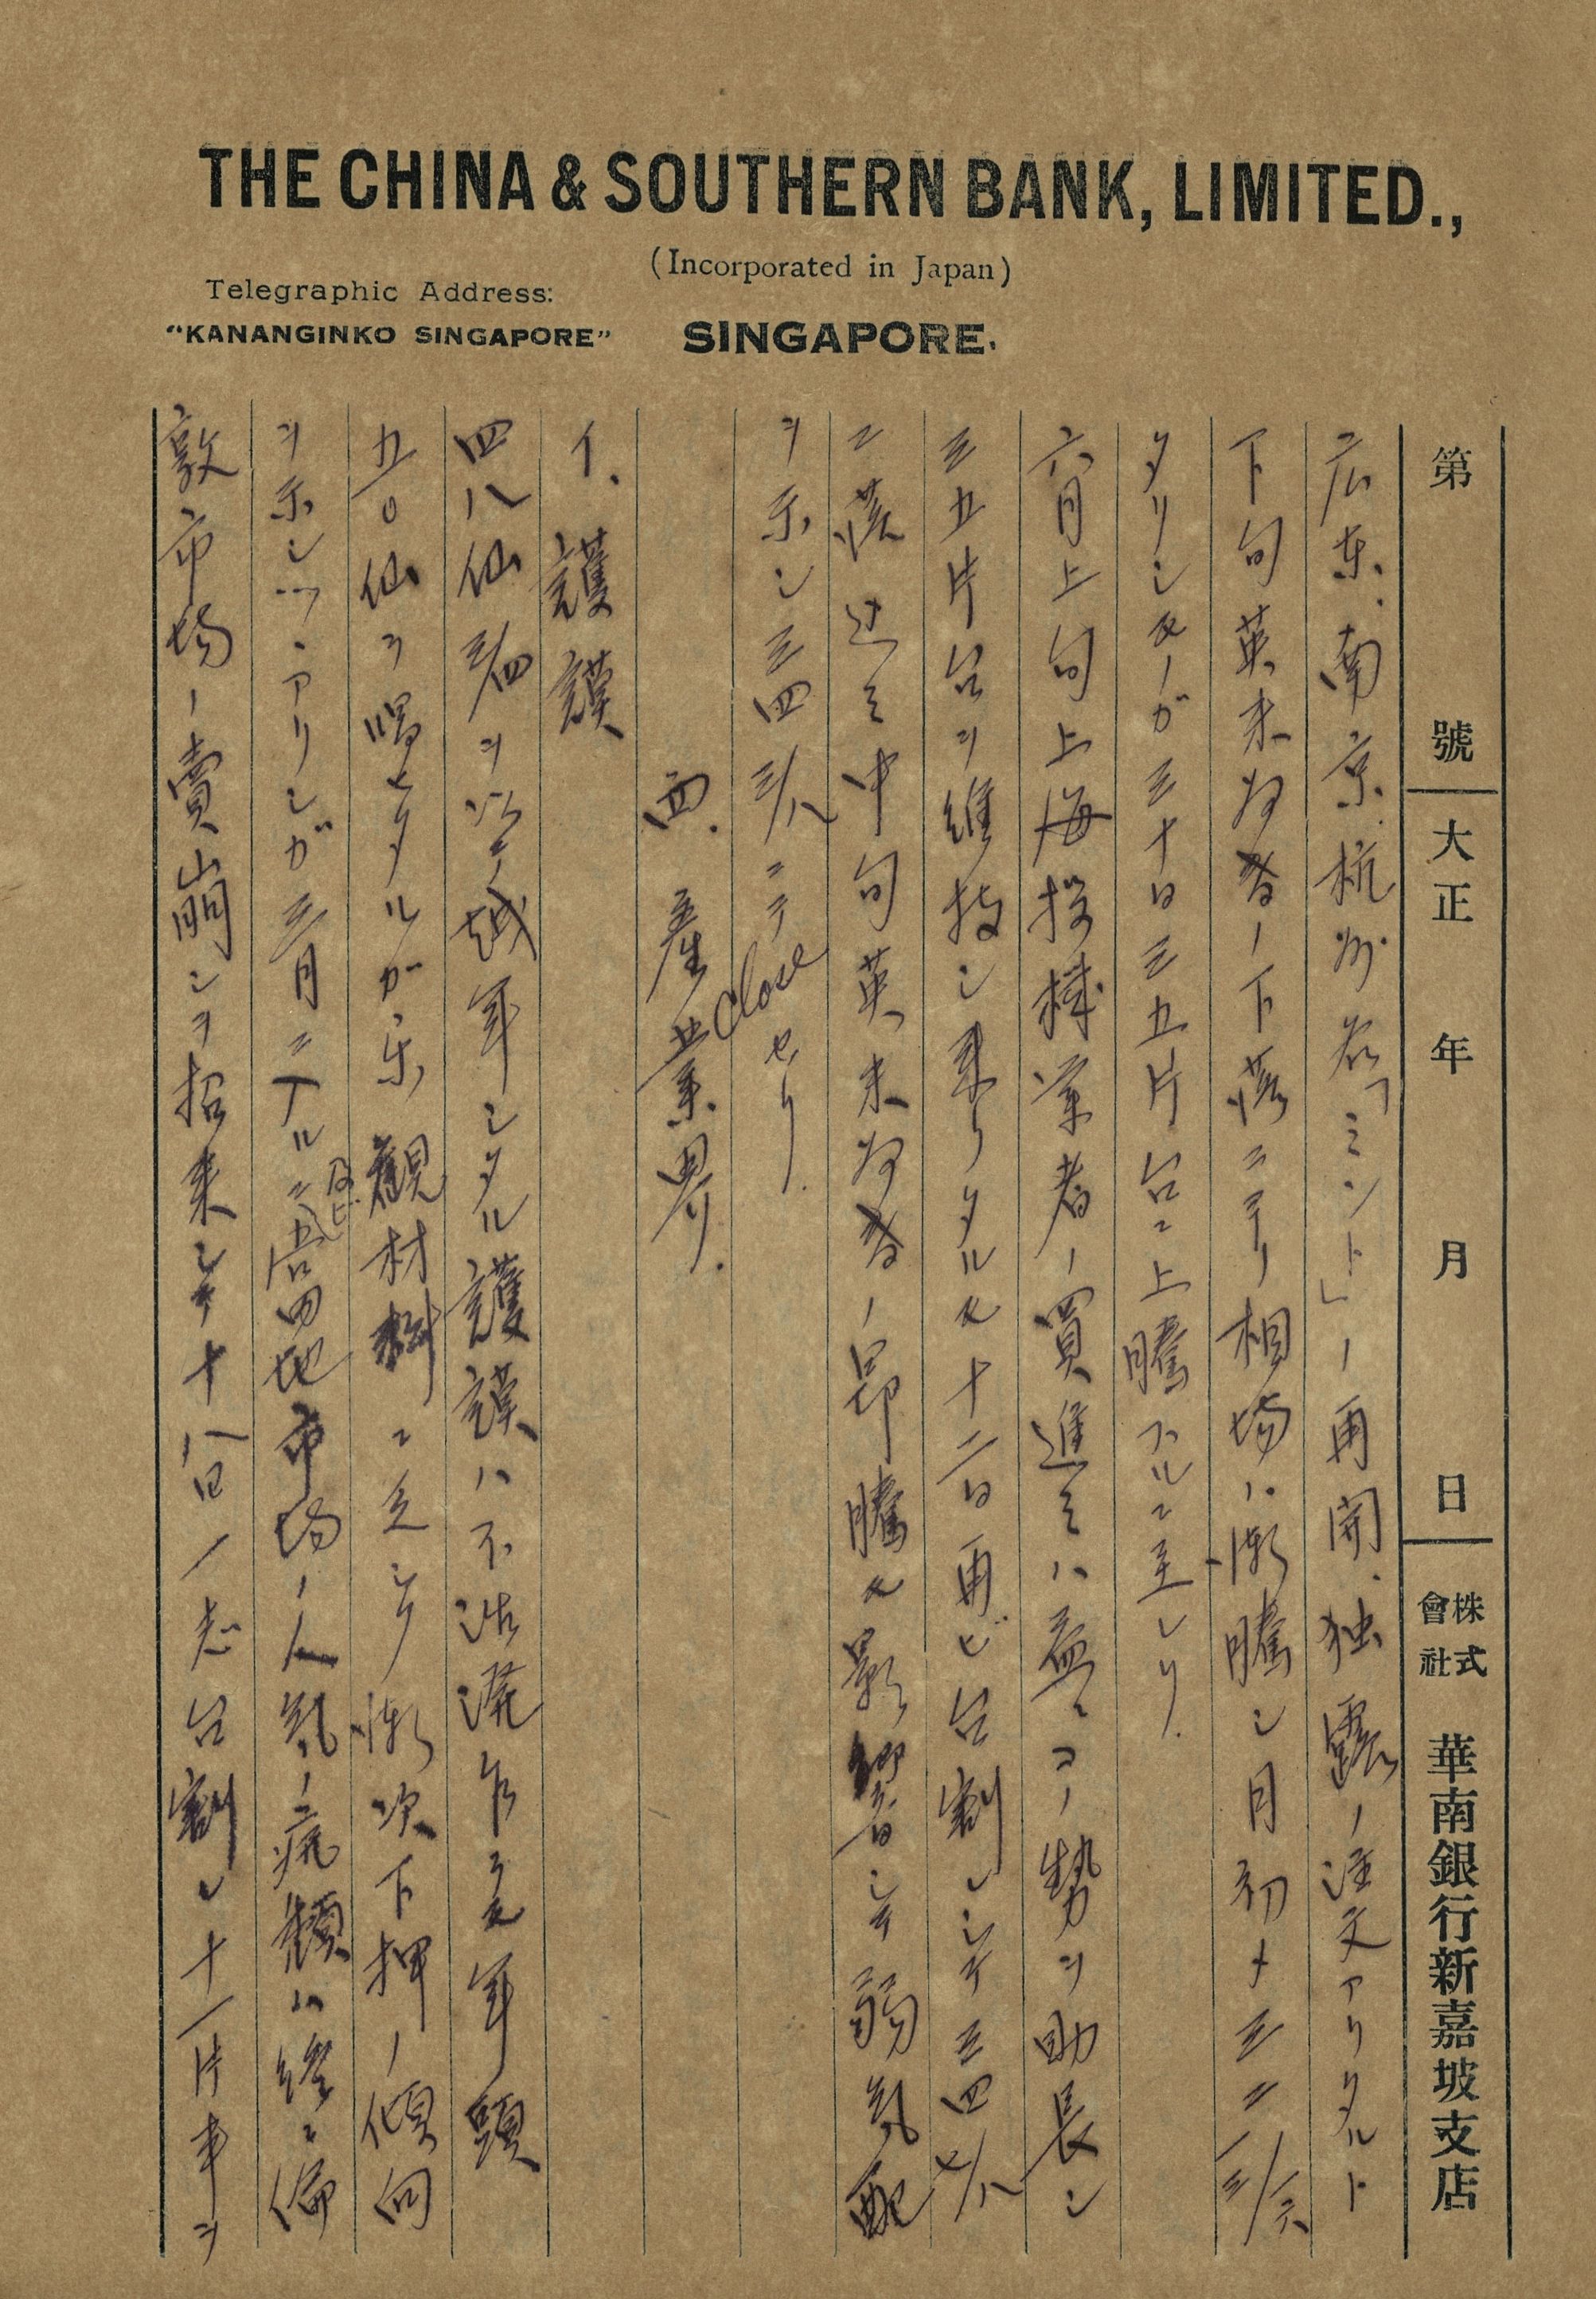 THE CHINA & SOUTHERN BANK, LIMITED.,
(Incorporated in Japan)
Telegraphic Address:
"KANANGINKO SINGAPORE"
SINGAPORE.
第 號 大正 年 月 日 株式會社 華南銀行新嘉坡支店
広東、南京、杭州各「ミント」ノ再開、独露ノ注文アリタルト
下旬英米為替ノ下落ニテ相場ハ漸騰シ月初メ三二一三/一六
タリシ又ガ三十日三五片台ニ上騰スルニ至レリ.
六月上旬上海投機業者ノ買進ミハ益々コノ勢ヲ助長シ
三五片台ヲ維持シ来リタル又十二日再ビ台割レシテ三四七/八
ニ落込ミ中旬英米為替ノ昂騰又影響シテ弱気配
ヲ示シ三四三/八ニテ Close セリ.
四. 産業界.
イ. 護謨
四八仙三/四ヲ以テ越年シタル護謨ハ不活溌乍ラ元年頭
五〇仙ヲ唱ヒタルガ、楽観材料ニ乏シク漸次下押ノ傾向
ヲ示シツヽアリシガ三月ニ入ルニ及ビ当地市場ノ人気ノ廃頽ハ終ニ倫
敦市場ノ賣崩シヲ招来シテ十八日一志台割レ十一片半ヲ